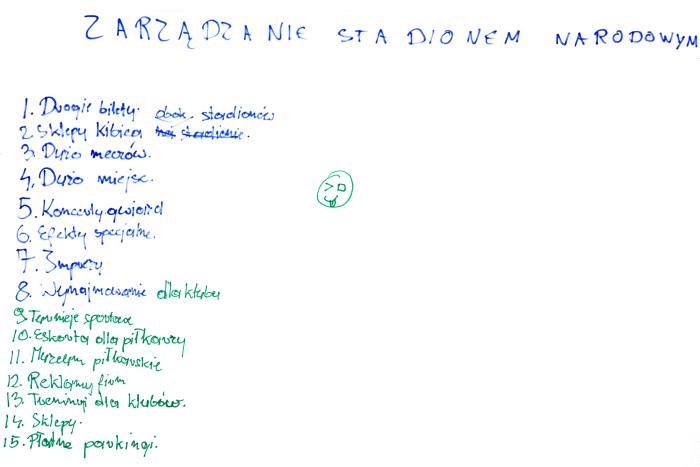 ZARZĄDZANIE STADIONEM NARODOWYM
1. Drogie bilety.
2. Sklepy kibica obok stadionów
3. Dużo meczów.
4. Dużo miejsc.
5. Koncerty gwiazd
6. Efekty specjalne.
7. Imprezy
8. Wynajmowanie dla klubu
9. Turnieje sportowe
10. Eskorta dla piłkarzy
11. Muzeum piłkarskie
12. Reklamy firm
13. Treningi dla klubów.
14. Sklepy.
15. Płatne parkingi.